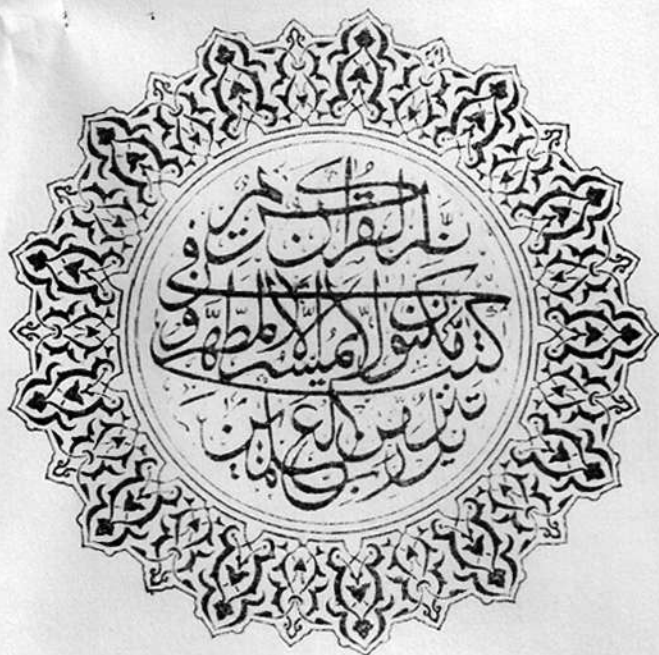 إنه لقرآن كريم
في كتب مكنون لا يمسه إلا المطهرون
تنزيل من رب العلمين